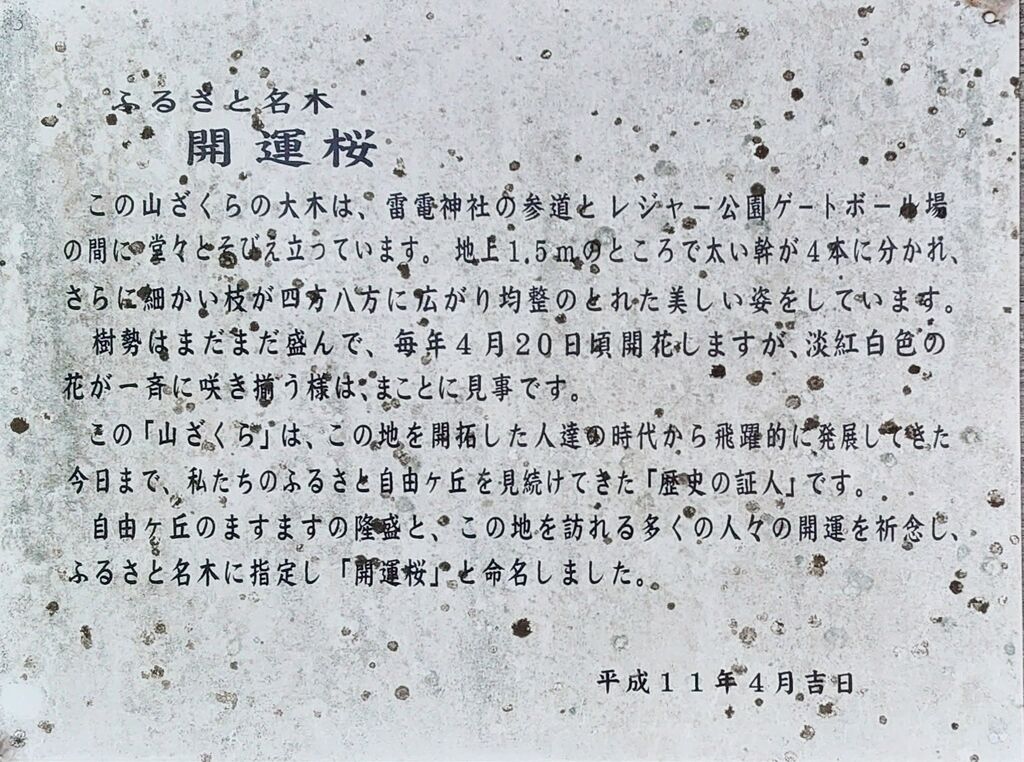 ふるさと名木
開運桜
この山ざくらの大木は、雷電神社の参道とレジャー公園ゲートボール場
の間に堂々とそびえ立っています。地上1.5mのところで太い幹が4本に分かれ、
さらに細かい枝が四方八方に広がり均整のとれた美しい姿をしています。
樹勢はまだまだ盛んで、毎年4月20日頃開花しますが、淡紅白色の
花が一斉に咲き揃う様は、まことに見事です。
この「山ざくら」は、この地を開拓した人達の時代から飛躍的に発展してきた
今日まで、私たちのふるさと自由ヶ丘を見続けてきた「歴史の証人」です。
自由ヶ丘のますますの隆盛と、この地を訪れる多くの人々の開運を祈念し、
ふるさと名木に指定し「開運桜」と命名しました。
平成11年4月吉日